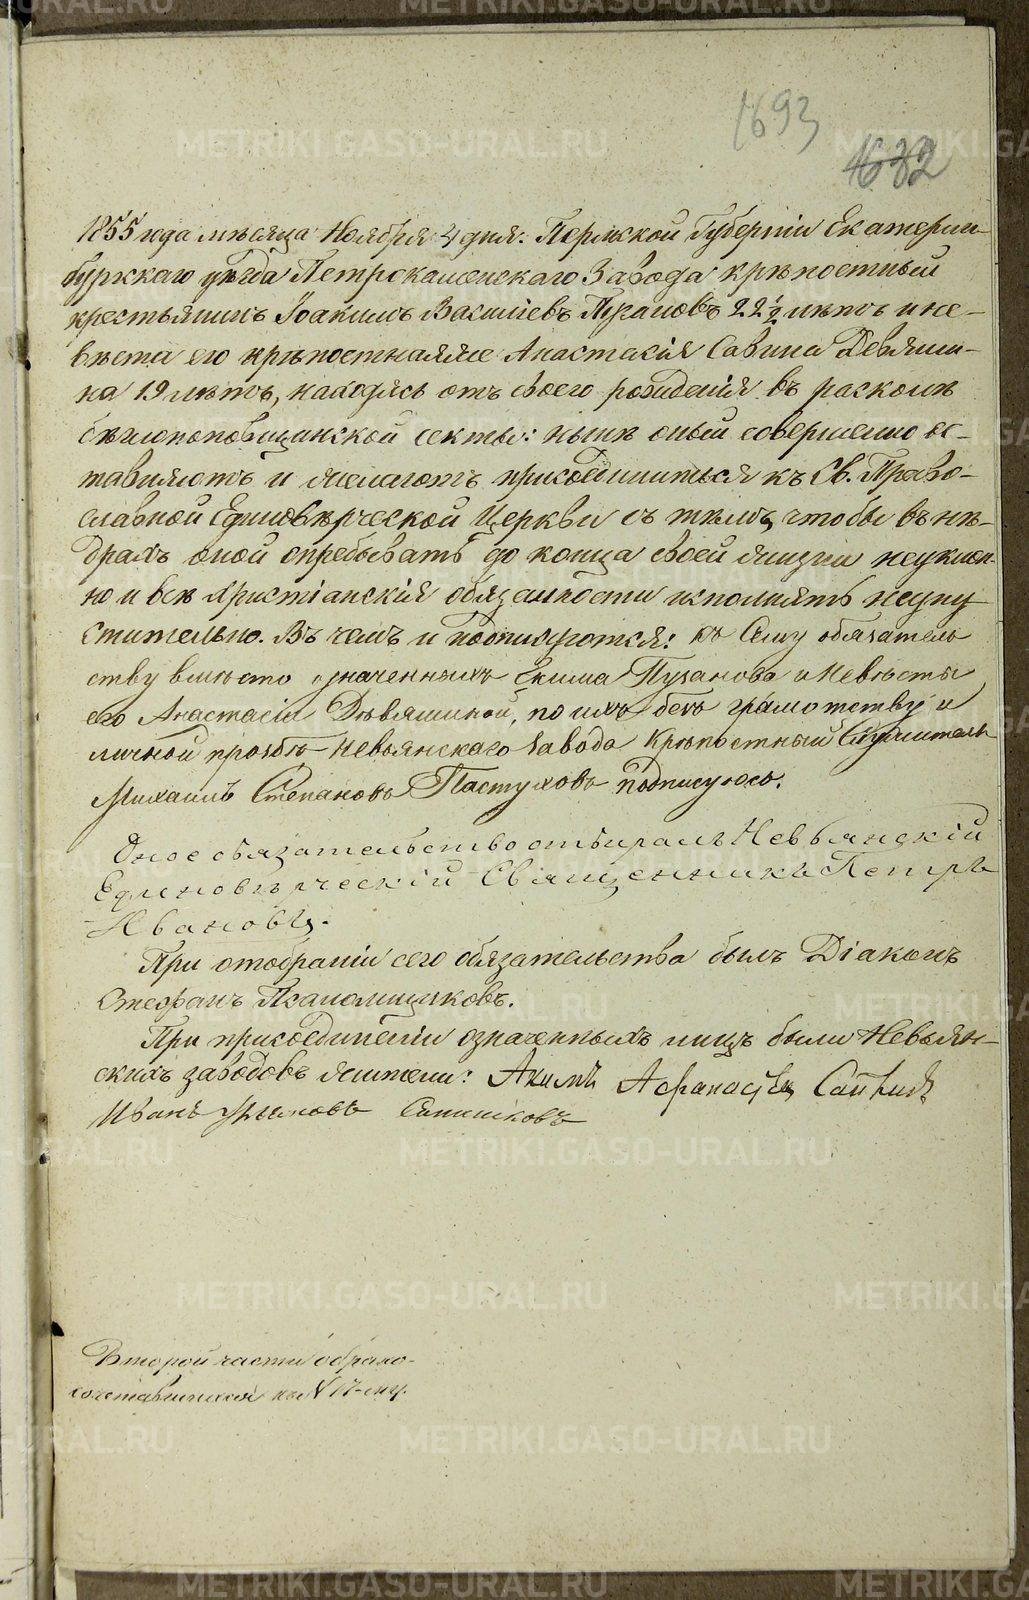 1693
1632
1855 года мѣсяца Ноября 4 дня. Пермской Губерніи Екатерин-
бургскаго уѣзда Петрокаменскаго Завода крѣпостный
крестьянинъ Іоакимъ Васильевъ Пузановъ 22½ лѣтъ и не-
вѣста его крѣпостная же Анастасія Савина Девяши-
на 19 лѣтъ, находясь отъ своего рожденія въ расколѣ
бѣглопоповщинской секты: нынѣ оный совершенно ос-
тавляютъ и желаютъ присоединиться къ Св. Право-
славной Единовѣрческой Церкви съ тѣмъ, чтобы въ нѣ-
драхъ оной пребывать до конца своей жизни неуклон-
но и всѣ Христіанскія обязанности исполнять неупу-
стительно. Въ чемъ и подпишутся: къ Сему обязатель
ству вмѣсто означенныхъ Екима Пузанова и Невѣсты
его Анастасіи Дѣвяшиной, по ихъ безъ грамотству и
личной прозбѣ Невьянскаго Завода Крѣпостный Служитель
Михаилъ Степановъ Пастуховъ подписуюсь.
Оное обязательство отбиралъ Невьянскій
Единовѣрческій Священникъ Петръ
Ивановъ.
При отобраніи сего обязательства былъ Діаконъ
Стефанъ Псаломщиковъ.
При присоединеніи означенныхъ лицъ были Невьян-
скихъ заводовъ жители: Акимъ Афанасьевъ
Иванъ
Второй части о брако-
сочетавшихся по № 17-му.
METRIKI.GASO-URAL.RU